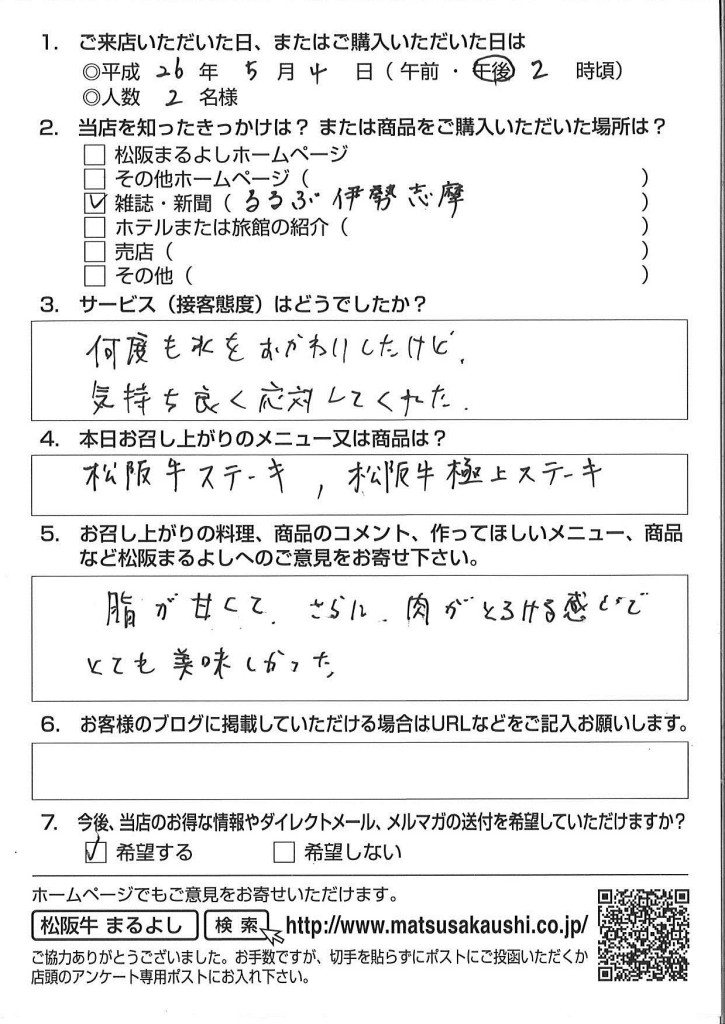 1. ご来店いただいた日、またはご購入いただいた日は
◎平成 26 年 5 月 4 日(午前・午後 2 時頃)
◎人数 2 名様
2. 当店を知ったきっかけは?または商品をご購入いただいた場所は?
□ 松阪まるよしホームページ
□ その他ホームページ( )
☑ 雑誌・新聞(るるぶ 伊勢志摩 )
□ ホテルまたは旅館の紹介( )
□ 売店( )
□ その他( )
3. サービス(接客態度)はどうでしたか?
何度も水をおかわりしたけど、
気持ち良く応対してくれた.
4. 本日お召し上がりのメニュー又は商品は?
松阪牛ステーキ , 松阪牛極上ステーキ
5. お召し上がりの料理、商品のコメント、作ってほしいメニュー、商品
など松阪まるよしへのご意見をお寄せ下さい。
脂が甘くて、さらに、肉がとろける感じで
とても美味しかった。
6. お客様のブログに掲載していただける場合はURLなどをご記入お願いします。
7. 今後、当店のお得な情報やダイレクトメール、メルマガの送付を希望していただけますか?
☑ 希望する □ 希望しない
ホームページでもご意見をお寄せいただけます。
松阪牛 まるよし 検索 http://www.matsusakaushi.co.jp/
ご協力ありがとうございました。お手数ですが、切手を貼らずにポストにご投函いただくか
店頭のアンケート専用ポストにお入れ下さい。